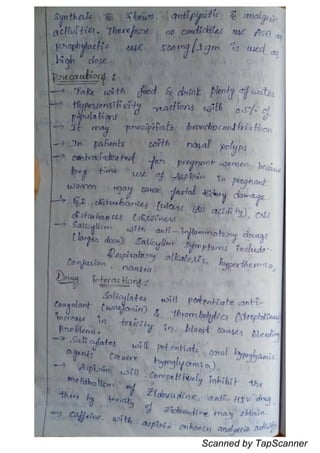 synthesis & shows antipyretic & analgesic
activities. Therefore no candidates use ASA as
prophylactic use 500mg/1gm is used as
high dose.
Precautions :
→ Take with food & drink plenty of water
→ Hypersensitivity reactions with 0.5% of
population
→ It may precipitate bronchoconstriction
→ In patients with nasal polyps
→ contraindicated for pregnant women because
long time use of Aspirin in pregnant
women may cause foetal damage
→ G.I disturbances (ulcers acidity), CNS
disturbances (dizziness
→ Salicylism with anti-inflammatory dosage
(larger dose) Salicylism symptoms include-
Respiratory alkalosis, hyperthermia,
Confusion, nausea
Drug interactions :
Salicylates will potentiate anti-
coagulant (warfarin) & thrombolytics (streptokinase
increase in toxicity in blood causes bleeding
problems.
→ Salicylates will potentiate oral hypoglycemic
agents (severe hypoglycemia).
→ Aspirin will competitively inhibit the
metabolism of Zidovudine, anti-HIV drug
there by toxicity of zidovudine may obtain.
→ Caffeine with aspirin enhances analgesic activity
Scanned by TapScanner